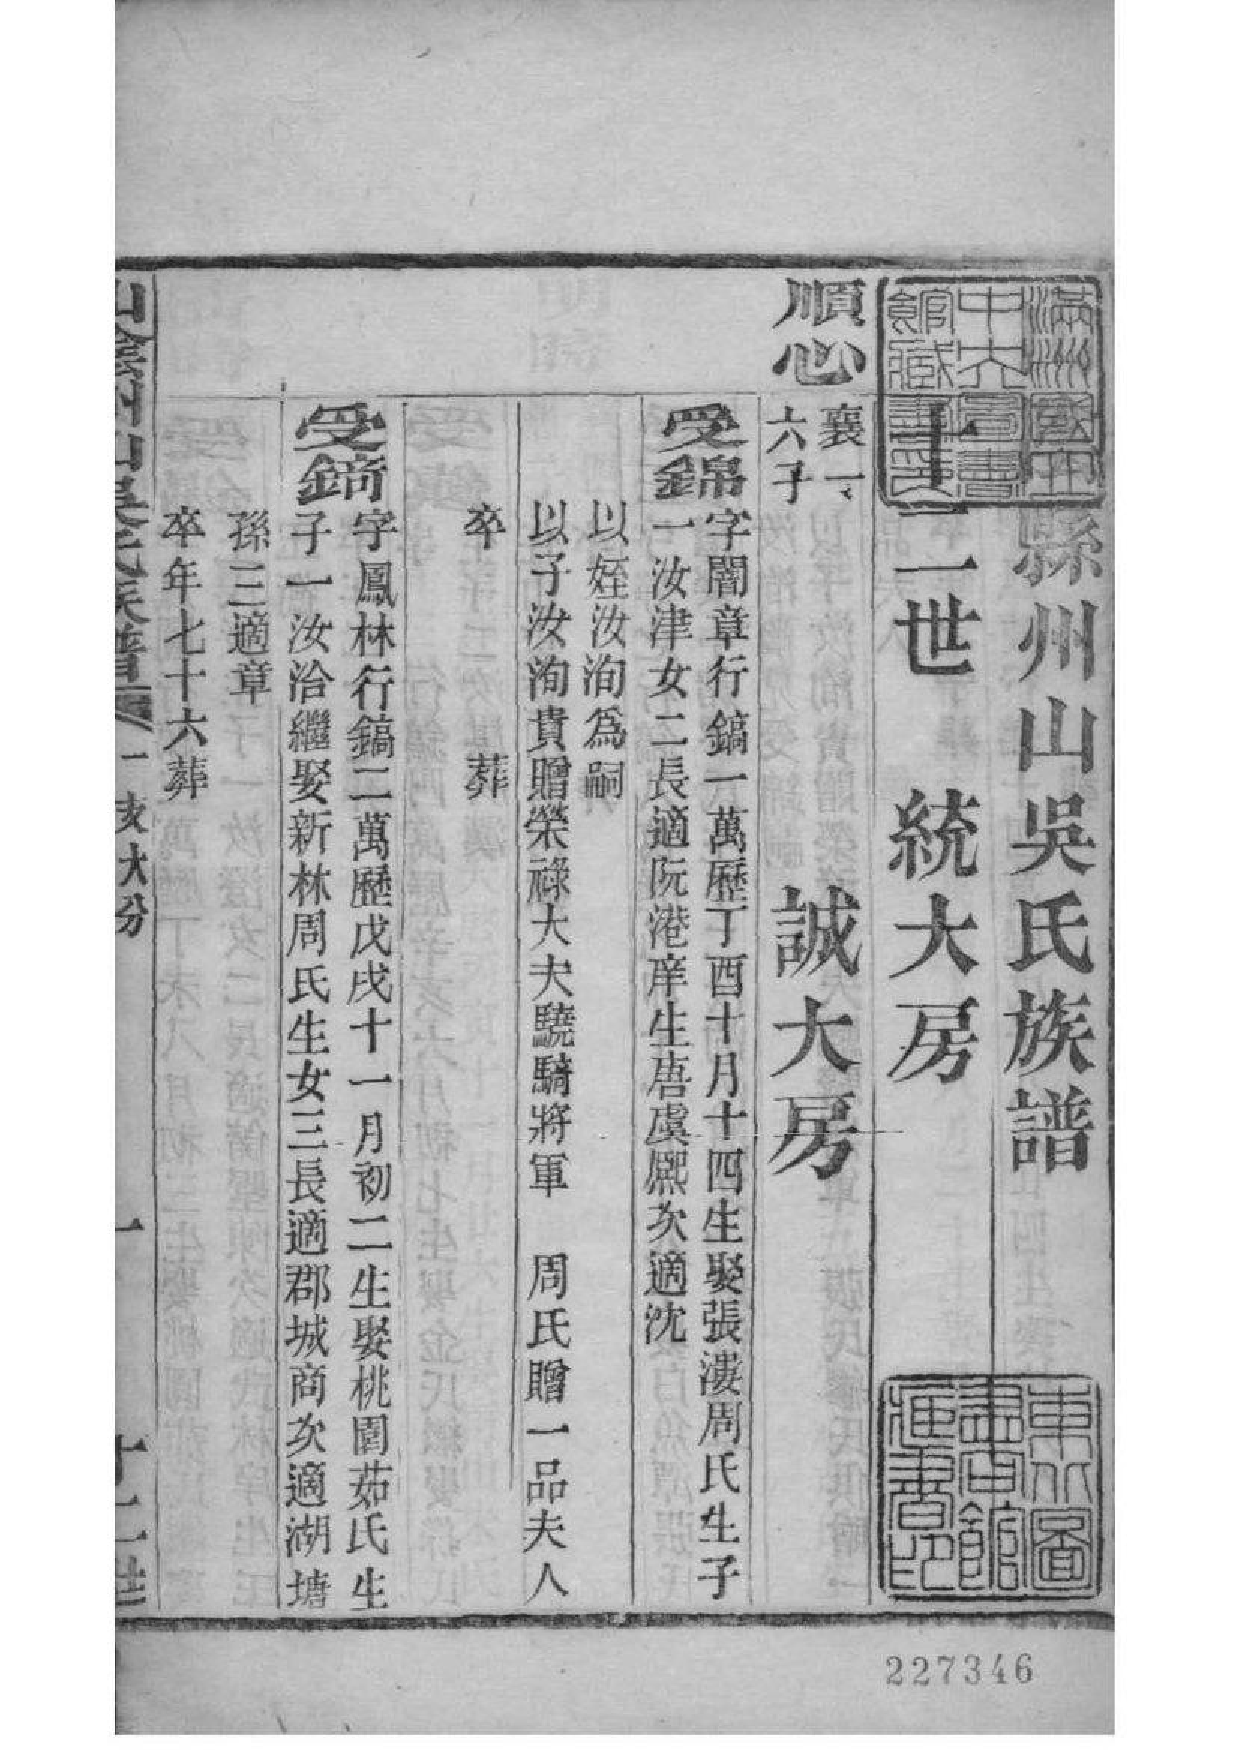 縣州山吳氏族譜
十二世 統大房
順心 襄一 誠大房
六子
受錦 字闇章行鎬一萬歷丁酉十月十四生娶張漊周氏生子
一汝津女二長適阮港庠生唐虞熙次適沈
以姪汝洵為嗣
以子汝洵貴贈榮祿大夫驍騎將軍 周氏贈一品夫人
卒 葬
受鏑 字鳳林行鎬二萬歷戊戌十一月初二生娶桃園茹氏生
子一汝洽繼娶新林周氏生女三長適郡城商次適湖塘
孫三適章
卒年七十六葬
山陰州山吳氏族譜 一支大分 一 十二世
滿洲國立中央圖書館藏書印
東北圖書館藏書印
227346